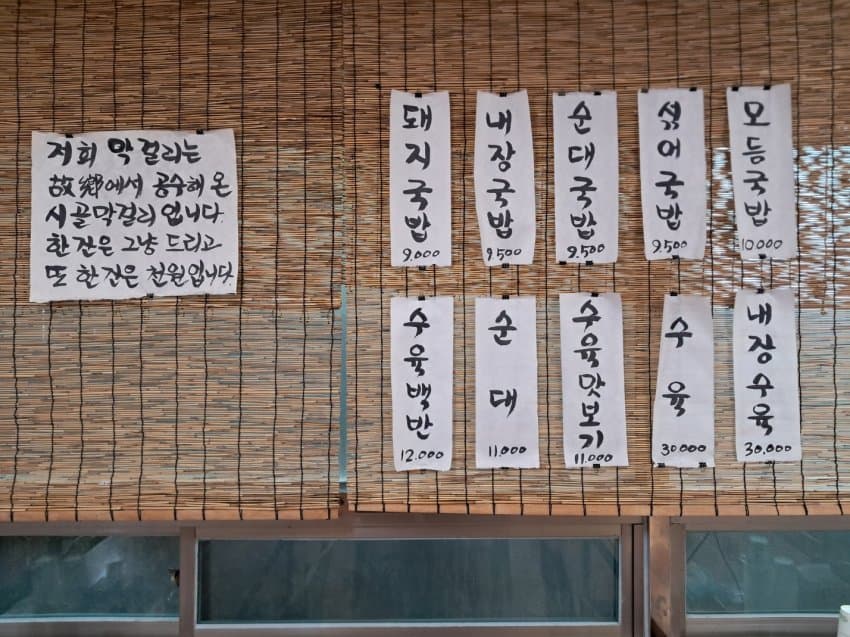 저희 막걸리는
故鄕에서 공수해 온
시골막걸리 입니다.
한잔은 그냥 드리고
또 한잔은 천원입니다.
돼지국밥
9.000
내장국밥
9.500
순대국밥
9.500
섞어국밥
9.500
모듬국밥
10.000
수육백반
12.000
순대
11.000
수육맛보기
11.000
수육
30.000
내장수육
30.000